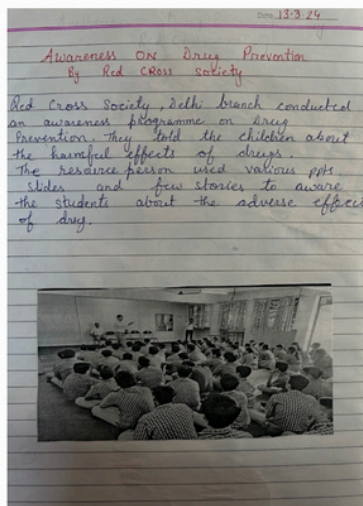 Date 13-3-24
Awareness ON Drug Prevention
By Red CROSS Society
Red Cross Society, Delhi branch conducted
an awareness programme on Drug
Prevention. They told the children about
the harmful effects of drugs.
The resource person used various ppts,
slides and few stories to aware
the students about the adverse effect
of drug.